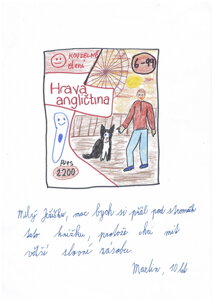 KOUZELNÉ
čtení
6-99
Hravá
angličtina
PŘES
2200
Milý Ježíšku, moc bych si přál pod stromeček
tuto knížku, protože chci mít
větší slovní zásobu.
Martin, 10 let